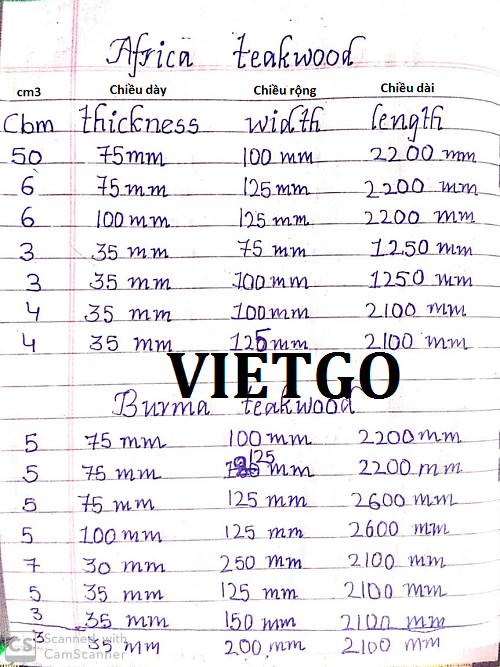 Africa teakwood
cm3 Chiều dày Chiều rộng Chiều dài
Cbm thickness width length
50 75mm 100 mm 2200 mm
6 75mm 125mm 2200 mm
6 100mm 125mm 2200 mm
3 35 mm 75 mm 1250 mm
3 35 mm 100mm 1250 mm
4 35 mm 100mm 2100 mm
4 35 mm 125mm 2100 mm
VIETGO
Burma teakwood
5 75 mm 100 mm 2200mm
5 75 mm 125 mm 2200 mm
5 75 mm 125 mm 2600 mm
5 100 mm 125 mm 2600 mm
7 30 mm 250 mm 2100 mm
5 35 mm 125 mm 2100 mm
3 35 mm 150 mm 2100 mm
3 35 mm 200 mm 2100 mm
CS Scanned with
CamScanner